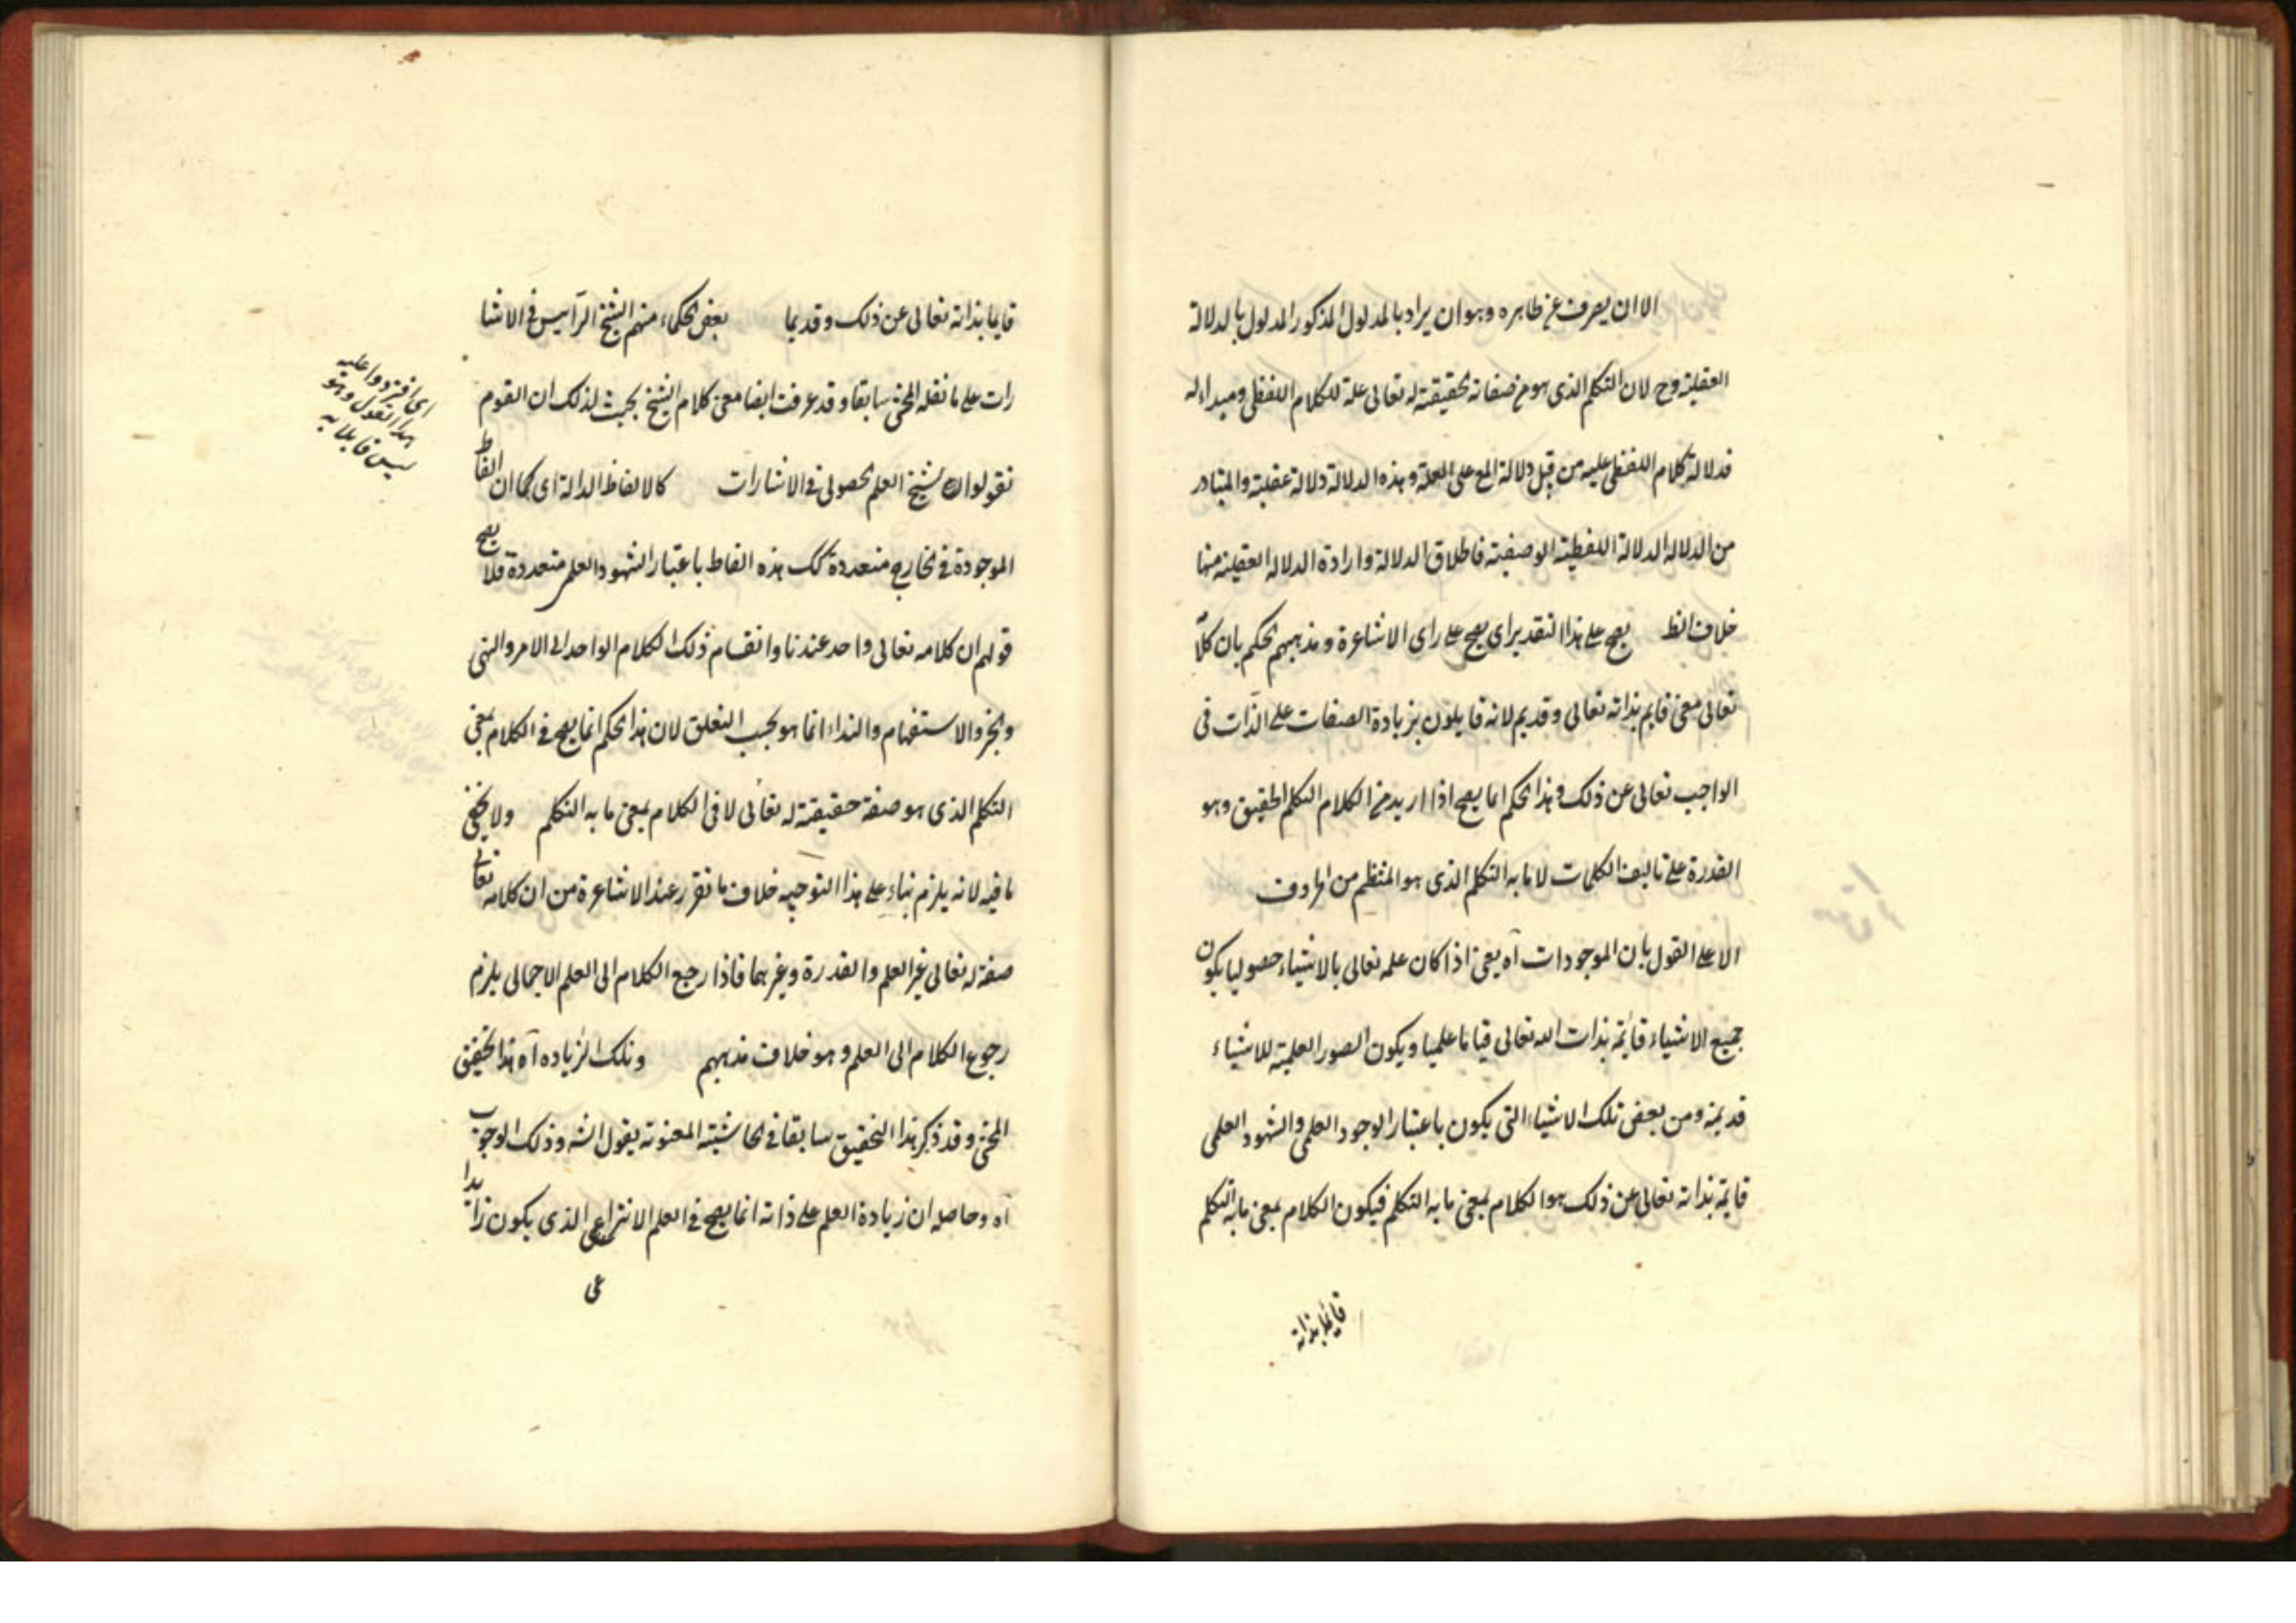 الا ان يصرف عن ظاهره وهو ان يراد بالمدلول المذكور المدلول بالدلالة
العقلية وح لان التكلم الذى هو من صفاته حقيقية له تعالى علة للكلام اللفظى ومبداء له
فدلالة كلام اللفظى عليه من قبل دلالة المع على العلة وهذه الدلالة دلالة عقلية والمتبادر
من الدلالة الدلالة اللفظية الوضعية فاطلاق الدلالة وارادة الدلالة العقلية منها
خلاف الظ يصح على هذا التقدير اى يصح على راى الاشاعرة ومذهبهم الحكم بان كلامه
تعالى معنى قايم بذاته تعالى وقديم لانه قايلون بزيادة الصفات على الذات فى
الواجب تعالى عن ذلك وهذا الحكم انما يصح اذا اريد من الكلام التكلم الحقيقى وهو
القدرة على تاليف الكلمات لا ما به التكلم الذى هو المنتظم من الحروف
الا على القول بان الموجودات آه يعنى اذا كان علمه تعالى بالاشياء حصوليا يكون
جميع الاشياء قائمة بذات الله تعالى قياما علميا ويكون الصور العلمية للاشياء
قديمة ومن بعض تلك الاشياء التى يكون باعتبار الوجود العلمى والشهود العلمى
قايمة بذاته تعالى عن ذلك هو الكلام بمعنى ما به التكلم فيكون الكلام بمعنى ما به التكلم
قايما بذاته
قايما بذاته تعالى عن ذلك وقديما بعض الحكماء منهم الشيخ الرئيس فى الاشا
رات على ما نقله المحشى سابقا وقد عرفت ايضا معنى كلام الشيخ بحيث لذلك ان القوم
تقولوا الشيخ العلم حصولى فى الاشارات كالالفاظ الدالة اى كما ان الفاظ
الموجودة فى الخارج متعددة كك هذه الفاظ باعتبار الشهود العلمى متعددة فلا يصح
قولهم ان كلامه تعالى واحد عندنا وانقسام ذلك الكلام الواحد الى الامر والنهى
والخبر والاستفهام والنداء انما هو بحسب التعلق لان هذا الحكم انما يصح فى الكلام بمعنى
التكلم الذى هو صفة حقيقية له تعالى لا فى الكلام بمعنى ما به التكلم ولا يخفى
ما فيه لانه يلزم بناء على هذا التوجيه خلاف ما تقرر عند الاشاعرة من ان كلامه تعالى
صفة له تعالى غير العلم والقدرة وغيرهما فاذا رجع الكلام الى العلم الاجمالى يلزم
رجوع الكلام الى العلم وهو خلاف مذهبهم وتلك الزياده آه هذا تحقيق
المحشى وقد ذكر هذا التحقيق سابقا فى الحاشية المعنونة بقول الشه وذلك الوجوب
آه وحاصله ان زيادة العلم على ذاته انما يصح فى العلم الانتزاعى الذى يكون زايدا
عى
عليه
هذا القول وهو
ليس قايلا به